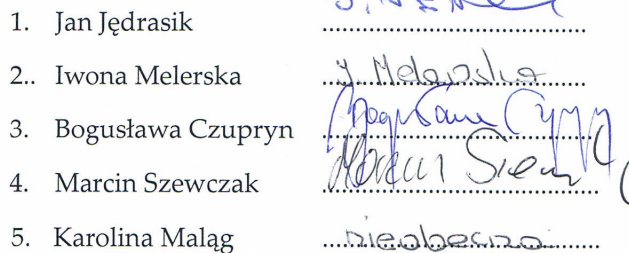 1. Jan Jędrasik ..........
2.. Iwona Melerska J. Melerska
3. Bogusława Czupryn Bogusława Czupryn
4. Marcin Szewczak Marcin
5. Karolina Maląg nieobecna